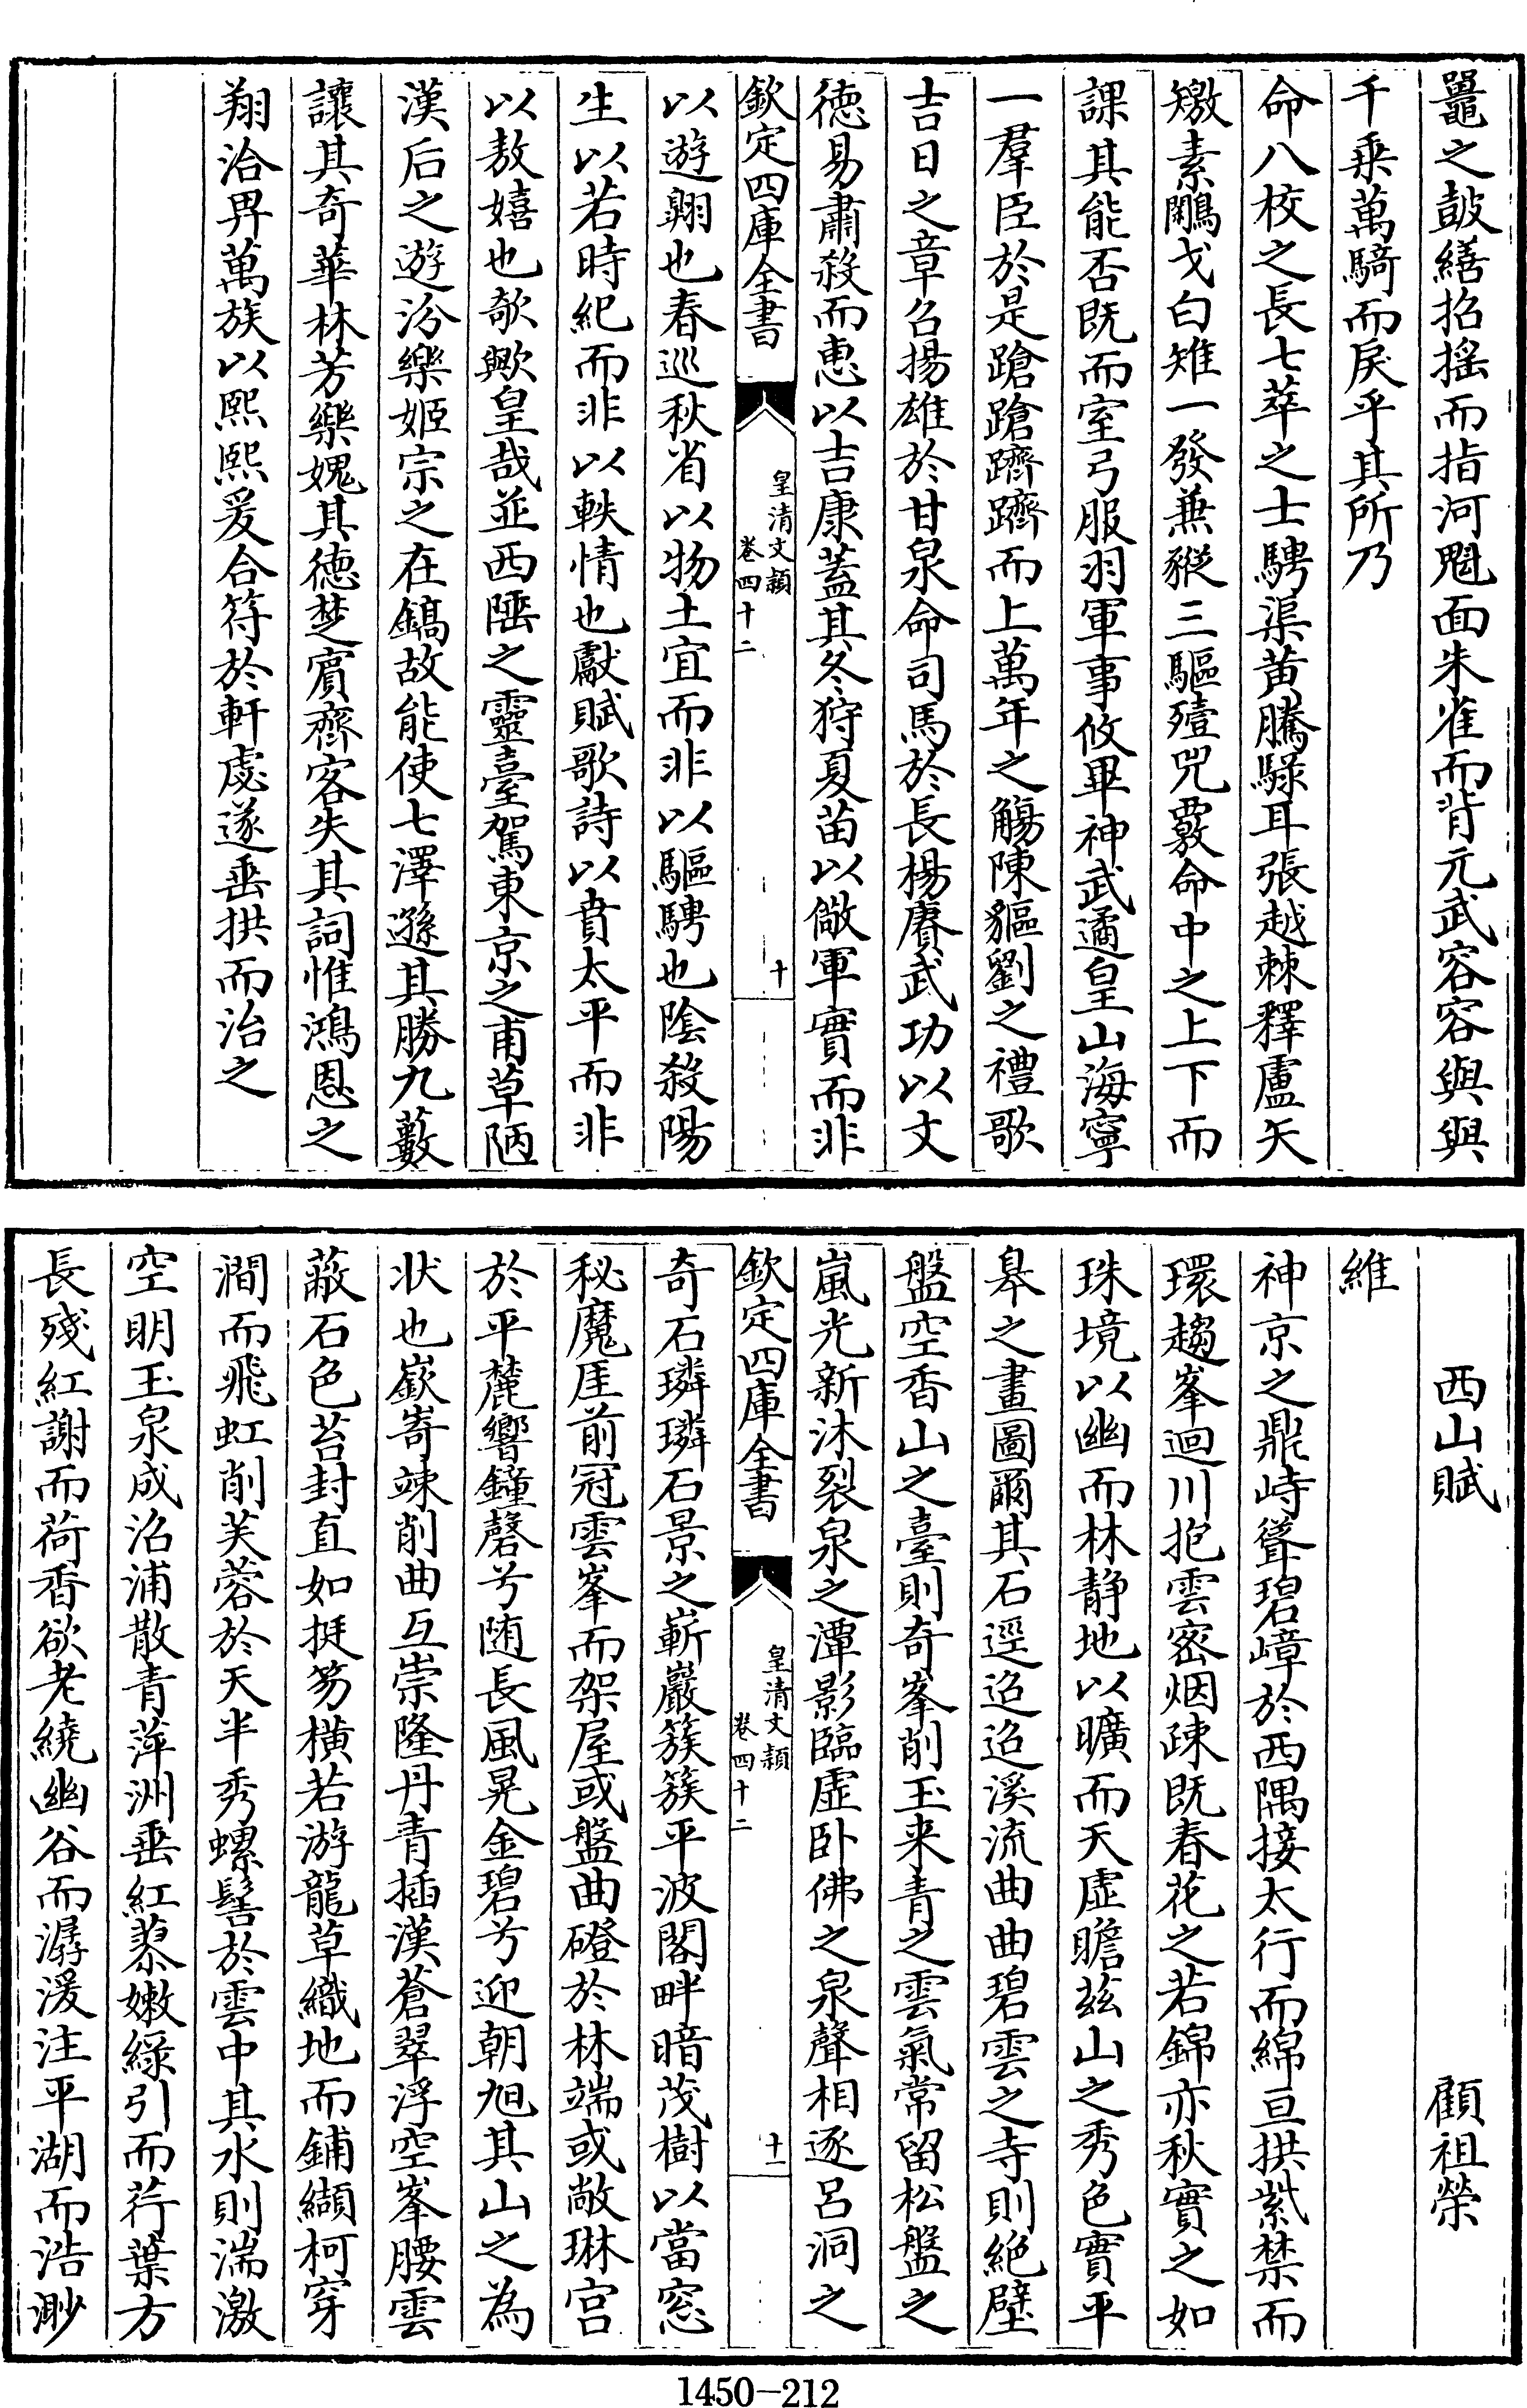 鼉之鼓繕招摇而指河魁面朱雀而背元武容容與與
千乗萬騎而戾乎其所乃
命八校之長七萃之士騁渠黄騰騄耳張越棘釋盧矢
墩素鷴弋白雉一發兼豵三驅殪兕覈命中之上下而
課其能否既而室弓服羽軍事攸畢神武遹皇山海寧
一羣臣於是蹌蹌躋躋而上萬年之觴陳貙劉之禮歌
吉日之章召揚雄於甘泉命司馬於長楊賡武功以文
德易肅殺而惠以吉康葢其冬狩夏苗以儆軍實而非
欽定四庫全書
皇清文頴
卷四十二
十
以遊翺也春巡秋省以物土宜而非以驅騁也隂殺陽
生以若時紀而非以軼情也獻賦歌詩以賁太平而非
以敖嬉也欹歟皇哉並西陲之靈臺駕東京之甫草陋
漢后之遊汾樂姬宗之在鎬故能使七澤遜其勝九藪
讓其奇華林芳樂媿其徳楚賔齊客失其詞惟鴻恩之
翔洽畀萬族以熙熙爰合符於軒虙遂垂拱而治之
西山賦
顧祖榮
維
神京之鼎峙聳碧嶂於西隅接太行而綿亘拱紫禁而
環趨峯迴川抱雲宻烟疎既春花之若錦亦秋實之如
珠境以幽而林静地以曠而天虛瞻兹山之秀色實平
皋之畫圖爾其石逕迢迢溪流曲曲碧雲之寺則絶壁
盤空香山之臺則奇峯削玉来青之雲氣常留松盤之
嵐光新沐裂泉之潭影臨虛卧佛之泉聲相逐呂洞之
欽定四庫全書
皇清文頴
卷四十二
十一
奇石璘璘石景之嶄巖簇簇平波閣畔暗茂樹以當窓
秘魔厓前冠雲峯而架屋或盤曲磴於林端或敞琳宫
於平麓響鐘磬兮随長風晃金碧兮迎朝旭其山之為
状也嶔崎竦削曲互崇隆丹青插漢蒼翠浮空峯腰雲
蔽石色苔封直如挺笏横若游龍草織地而鋪纈柯穿
澗而飛虹削芙蓉於天半秀螺髻於雲中其水則湍激
空明玉泉成沼浦散青萍洲垂紅蓼嫩緑引而荇葉方
長殘紅謝而荷香欲老繞幽谷而潺湲注平湖而浩渺
1450-212